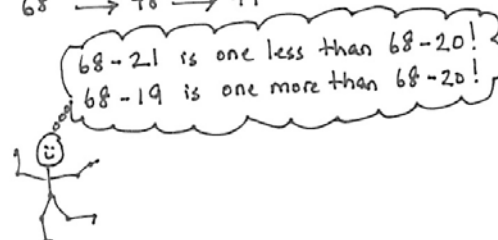 68-21 is one less than 68-20!
68-19 is one more than 68-20!